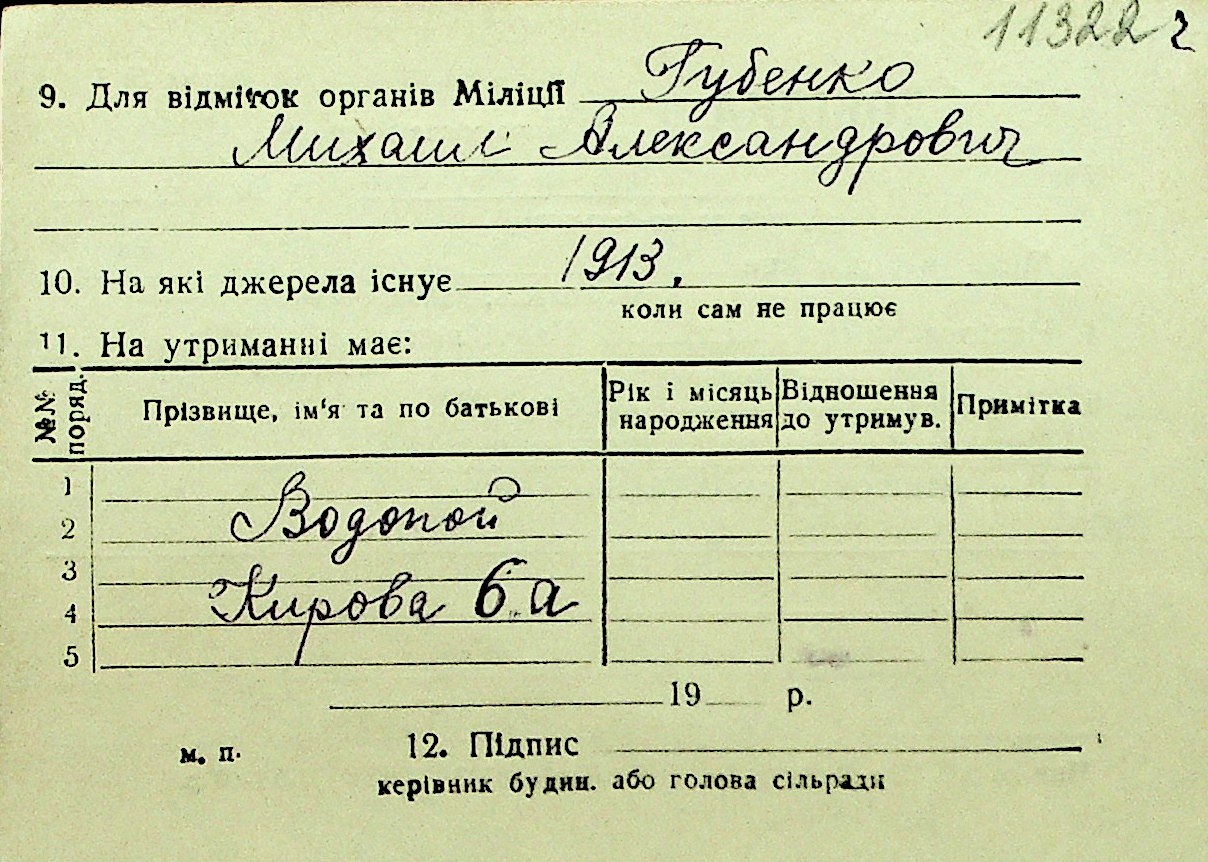 11322 г
9. Для відміток органів Міліції Губенко
Михаил Александрович
10. На які джерела існує 1913.
коли сам не працює
11. На утриманні має:
№№ поряд. Прізвище, ім'я та по батькові Рік і місяць народження Відношення до утримув. Примітка
1
2 Водопой
3
4 Кирова 6 а
5
19 р.
м. п. 12. Підпис
керівник будин. або голова сільради